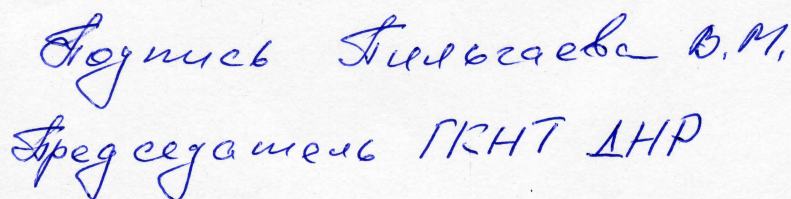 Подпись Пильгаева В.М.
Председатель ГКНТ ДНР